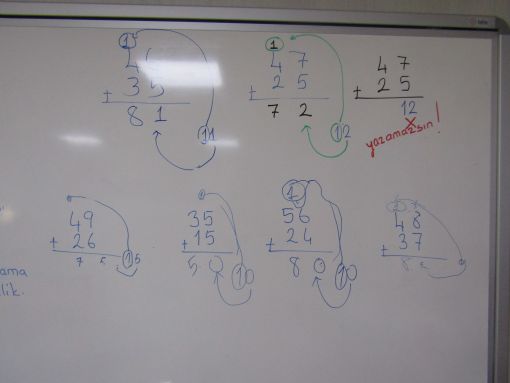 1
4
+ 35
81
11
1
47
+ 25
72
12
47
+ 25
12
yazamazsın!
49
+ 26
7 5
15
35
+ 15
50
10
1
56
+ 24
80
10
48
+ 37
8
ama
lik.